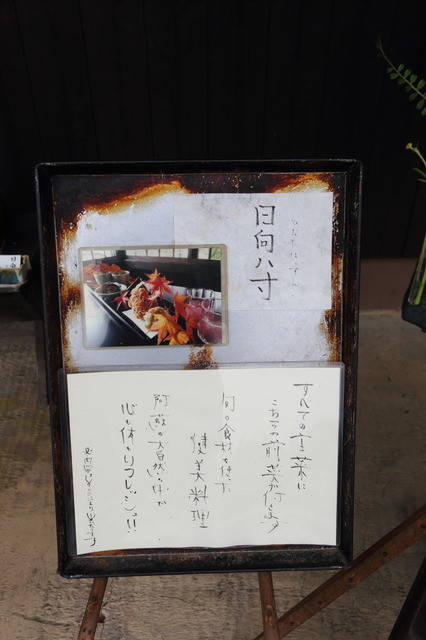 日向八寸
ひなたはっすん
すべての定食に
こちらの前菜が付きます
旬の食材を使った
健美料理
阿蘇の大自然の中で
心も体もリフレッシュ!!